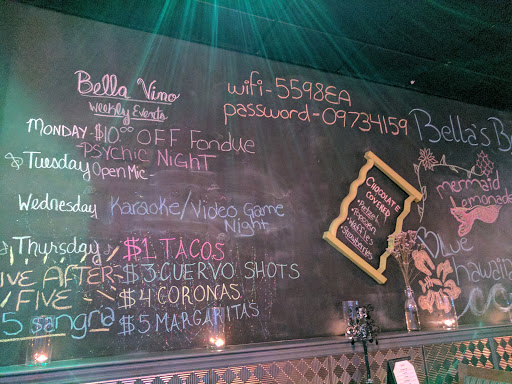 Bella Vino
Weekly Events
MONDAY $10.00 OFF Fondue
PSYCHIC NIGHT
Tuesday Open Mic
Wednesday Karaoke/Video Game
Night
Thursday $1 TACOS
AFTER $3 CUERVO SHOTS
FIVE $4 CORONAS
5 sangra $5 MARGARITAS
wifi-5598EA
password-09734159
CHOCOLATE
COVERED
Popcorn
Waffles
Strawberries
Bella's
mermaid
Lemonade
Blue